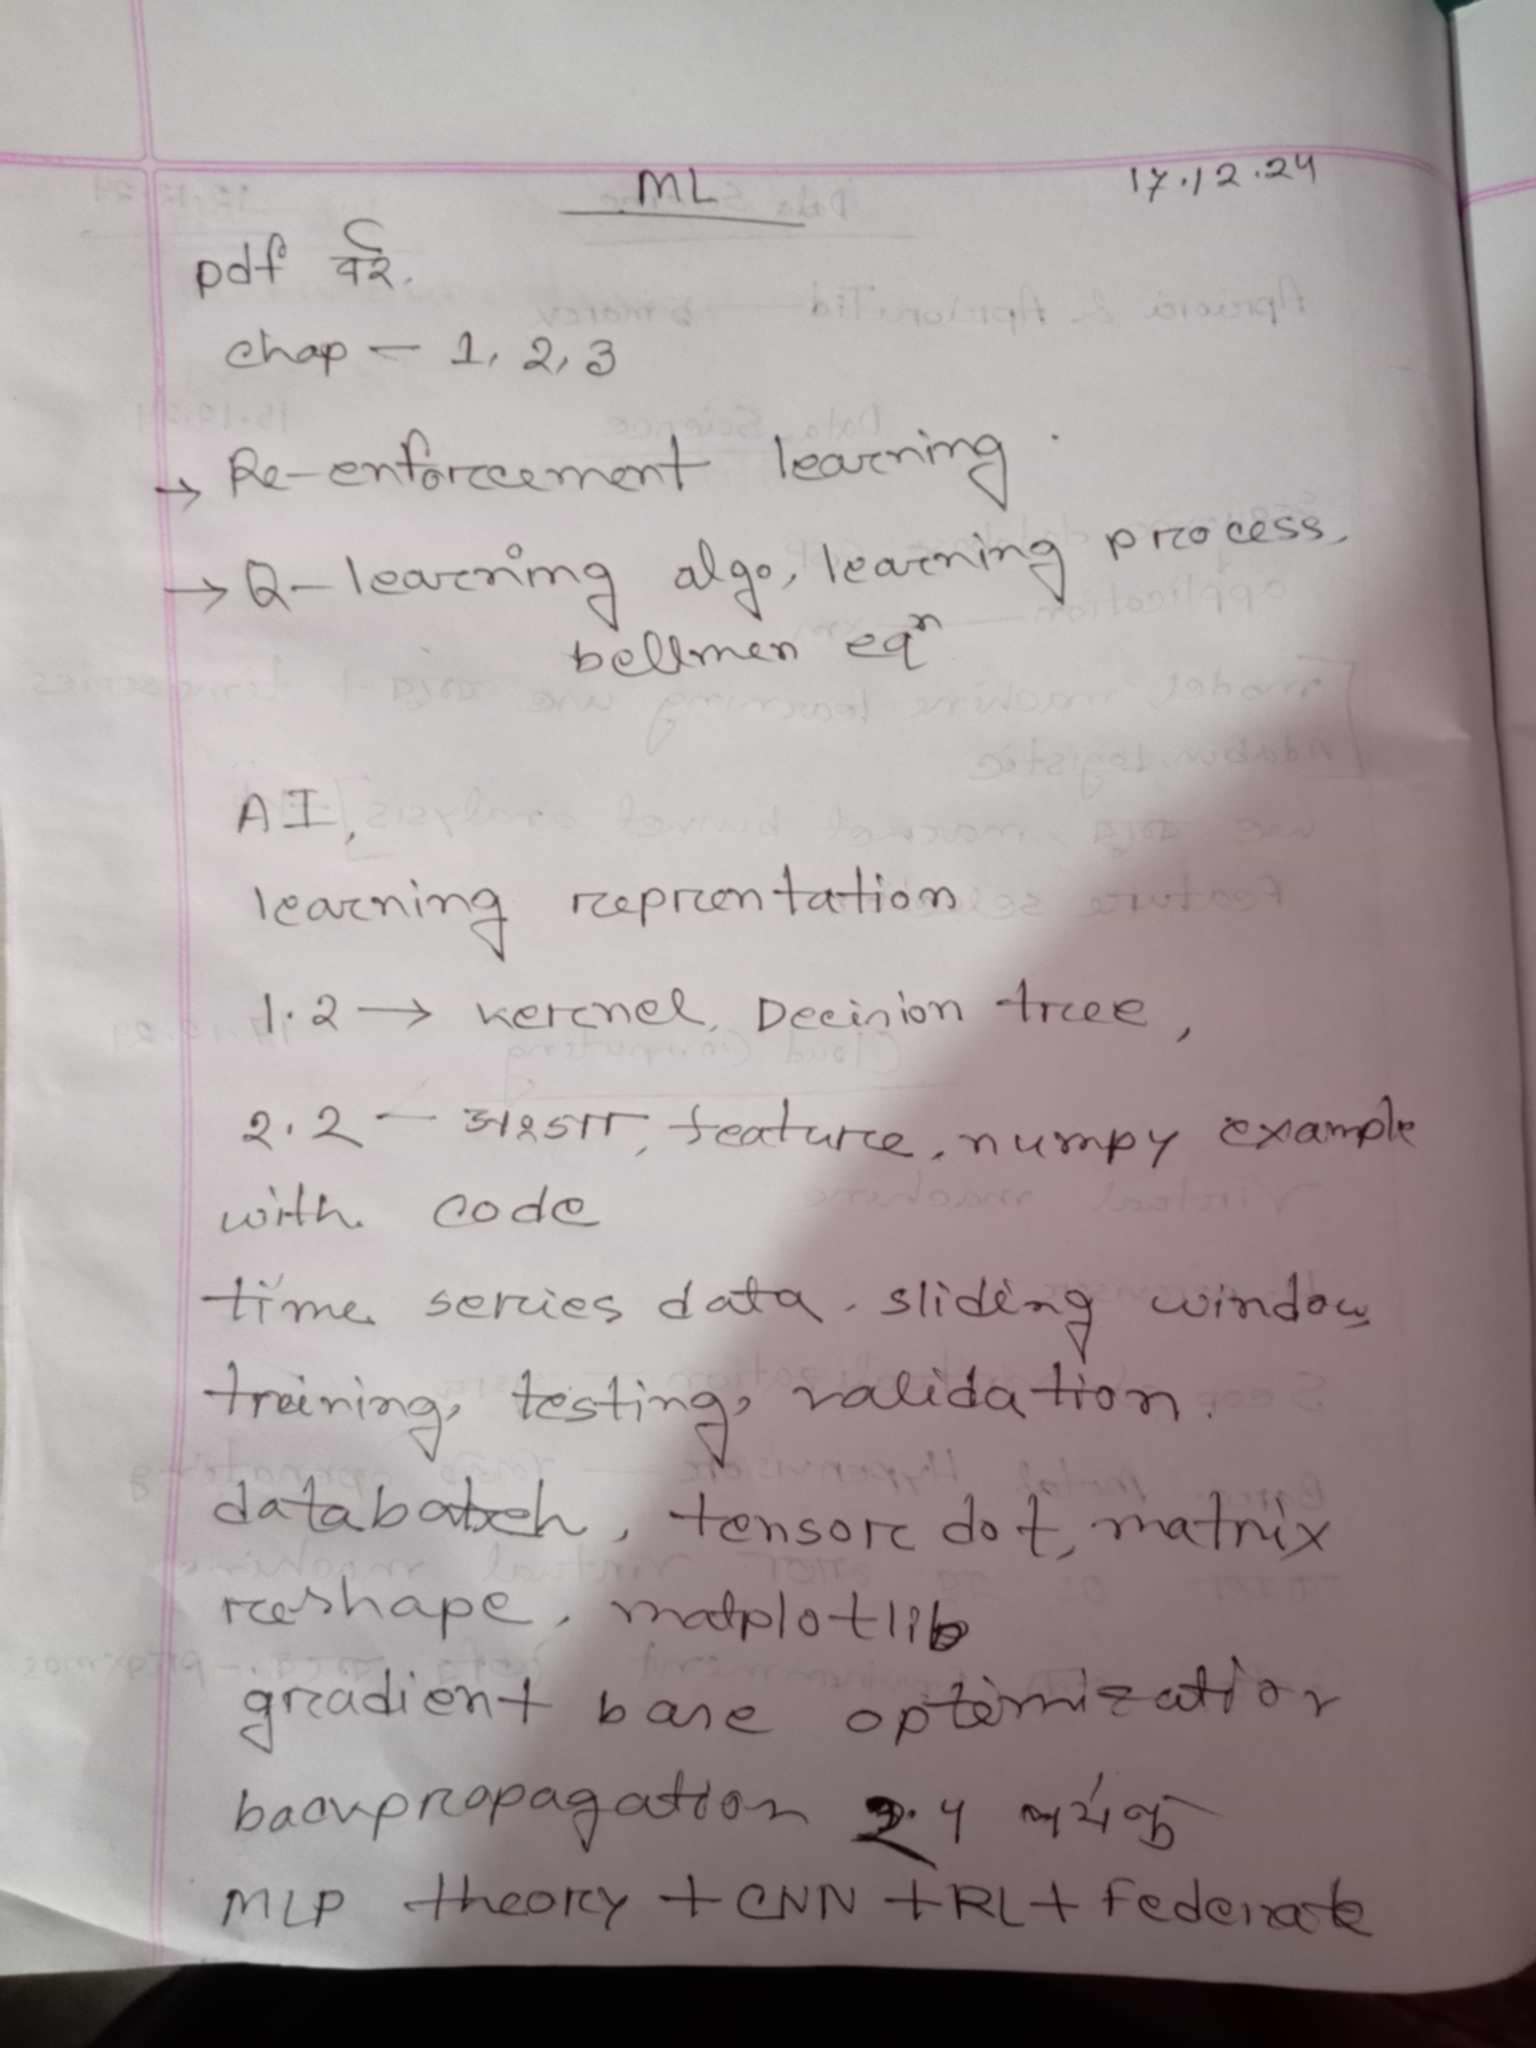 ML 17.12.24
pdf বই.
chap - 1, 2, 3
→ Re-enforcement learning.
→ Q-learning algo, learning process,
bellmen eqⁿ
AI,
learning reprentation
1.2 → kernel, Decision tree,
2.2 - সংজ্ঞা, feature, numpy example
with code
time series data. sliding window,
treining, testing, validation.
databatch, tensor dot, matrix
reshape, matplotlib
gradient base optimization
backpropagation 2.4 পর্যন্ত
MLP theory + CNN + RL + Federate